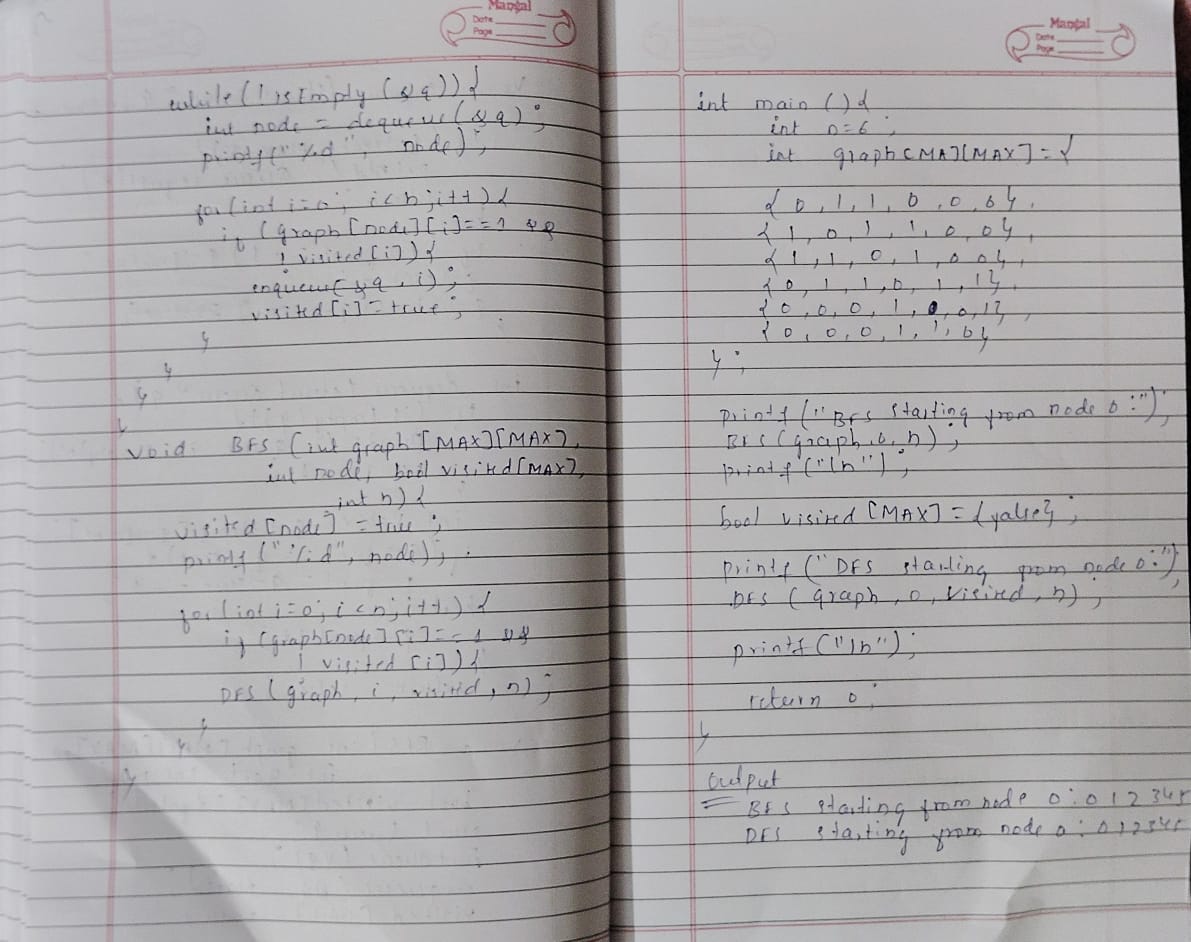 Mangal
Date
Page
while(!isEmpty(&q)){
int node = dequeue(&q);
printf("%d", node);
for(int i=0; i<n; i++){
if (graph[node][i]==1 &&
! visited[i]){
enqueue(&q, i);
visited[i]=true;
}
}
}
void BFS (int graph [MAX][MAX],
int node, bool visited[MAX],
int n){
visited[node] = true;
printf("%d", node);
for(int i=0; i<n; i++){
if (graph[node][i]==1 &&
! visited[i]){
DFS (graph, i, visited, n);
}
}
}
Mangal
Date
Page
int main () {
int n=6;
int graph[MA][MAX] = {
{ 0, 1, 1, 0, 0, 0 },
{ 1, 0, 1, 1, 0, 0 },
{ 1, 1, 0, 1, 0 0 },
{ 0, 1, 1, 0, 1, 1 },
{ 0, 0, 0, 1, 0, 0, 1 },
{ 0, 0, 0, 1, 1, 0 }
};
printf ("BFS starting from node 0:");
BFS (graph, 0, n);
printf ("\n");
bool visired [MAX] = {false};
printf ("DFS starting from node 0:");
DFS (graph, 0, visired, n);
printf ("\n");
return 0;
}
output
BFS starting from node 0: 0 1 2 3 4 5
DFS starting from node 0: 0 1 2 3 4 5